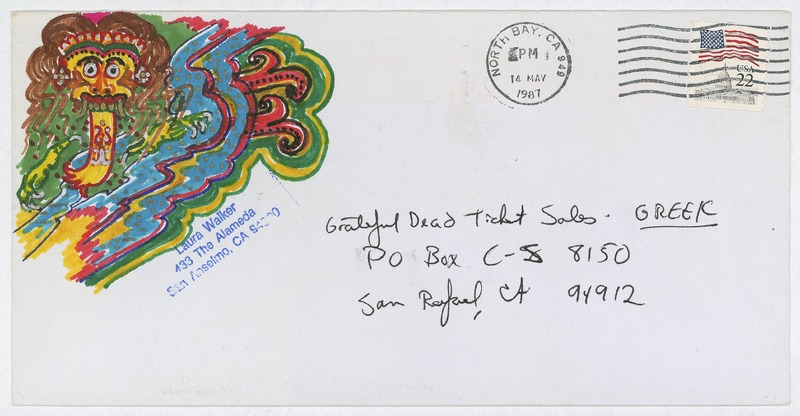 NORTH BAY, CA 949
PM
14 MAY
1987
USA
22
Laura Walker
433 The Alameda
San Anselmo, CA
Grateful Dead Ticket Sales. GREEK
PO Box C-S 8150
San Rafael, CA 94912